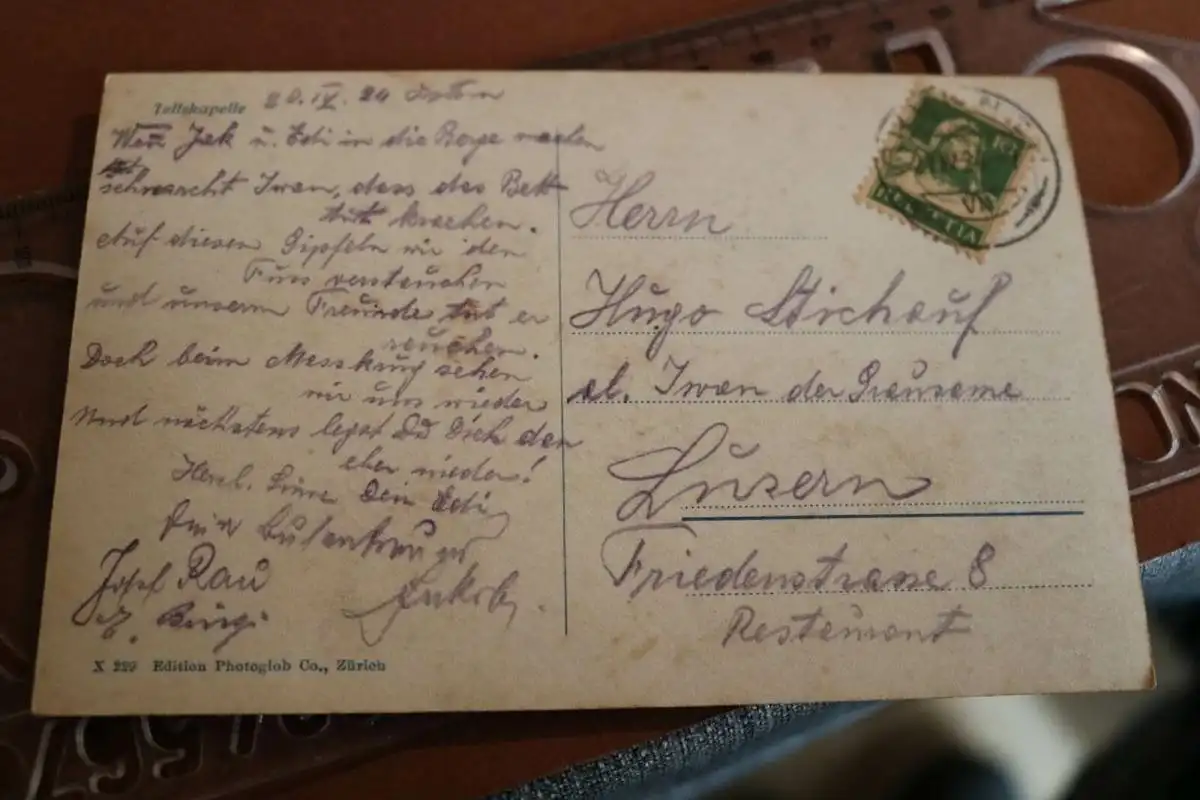 Tellskapelle 20. IV. 24 Ostern
Wen Jak u. Edi in die Berge machen
schnarcht Iwan, dass das Bett
tut krachen.
Auf diesen Gipfeln wir den
Fuss verstauchen
und unserm Freunde tut er
rauchen.
Doch beim Messkrug sehen
wir uns wieder
Und nächstens legst Du Dich dan
eher nieder!
Herzl. Dein Edi
Dein
Josef Rau
Bürgi
X 229 Edition Photoglob Co., Zürich
Herrn
Hugo Stichauf
Iwan der Grausame
Luzern
Friedenstrasse 8
Restaurant
HELVETIA